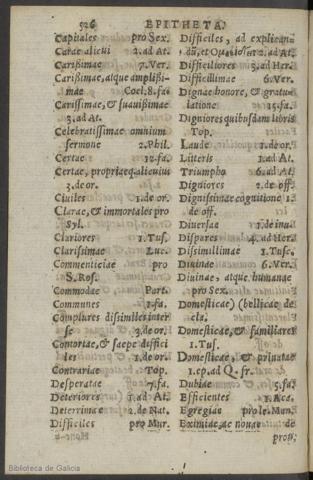 526 EPITHETA.
Capitales pro Sex.
Carae alicui 2. ad At.
Carißimae 7. Ver.
Carißimae, atque amplißi-
mae Coel. 8. fa.
Carissimae, & suauißimae
3. ad At.
Celebratissimae omnium
sermone 2. Phil.
Certae 12. fa.
Certae, propriaeq; alicuius
3. de or.
Ciuiles 1. de or.
Clarae, & immortales pro
Syl.
Clariores 1. Tus.
Clarissimae Luc.
Commenticiae pro
S. Ros.
Commodae Part.
Communes 1. fa.
Complures dissimiles inter
se 3. de or.
Contortae, & saepe diffici
les 1. de or.
Contrariae Top.
Desperatae 7. fa.
Deteriores 1. ad At.
Deterrimae 2. de Nat.
Difficiles pro Mur.
Difficiles, ad explican-
dũ, et 2. ad At.
Difficiliores 3. ad Her.
Difficillimae 6. Ver.
Dignae honore, & gratu-
latione 15. fa.
Digniores quibusdam libris
Top.
Laude 1. de or.
Litteris 1. ad At.
Triumpho 6. ad At.
Digniores 2. de off.
Dignissimae cognitione 1.
de off.
Diuersae 1. de inu.
Dispares 4. ad Her.
Dissimillimae 1. Tusc.
Diuinae 6. Ver.
Diuinae, atque humanae
pro Sex.
Domesticae) (bellicae de
cla.
Domesticae, & familiares
1. Tus.
Domesticae, & priuatae
1. ep. ad Q. fr.
Dubiae 5. fa.
Efficientes 1. Aca.
Egregiae pro le. Man.
Eximiae, ac nouae de
prou.
Biblioteca de Galicia